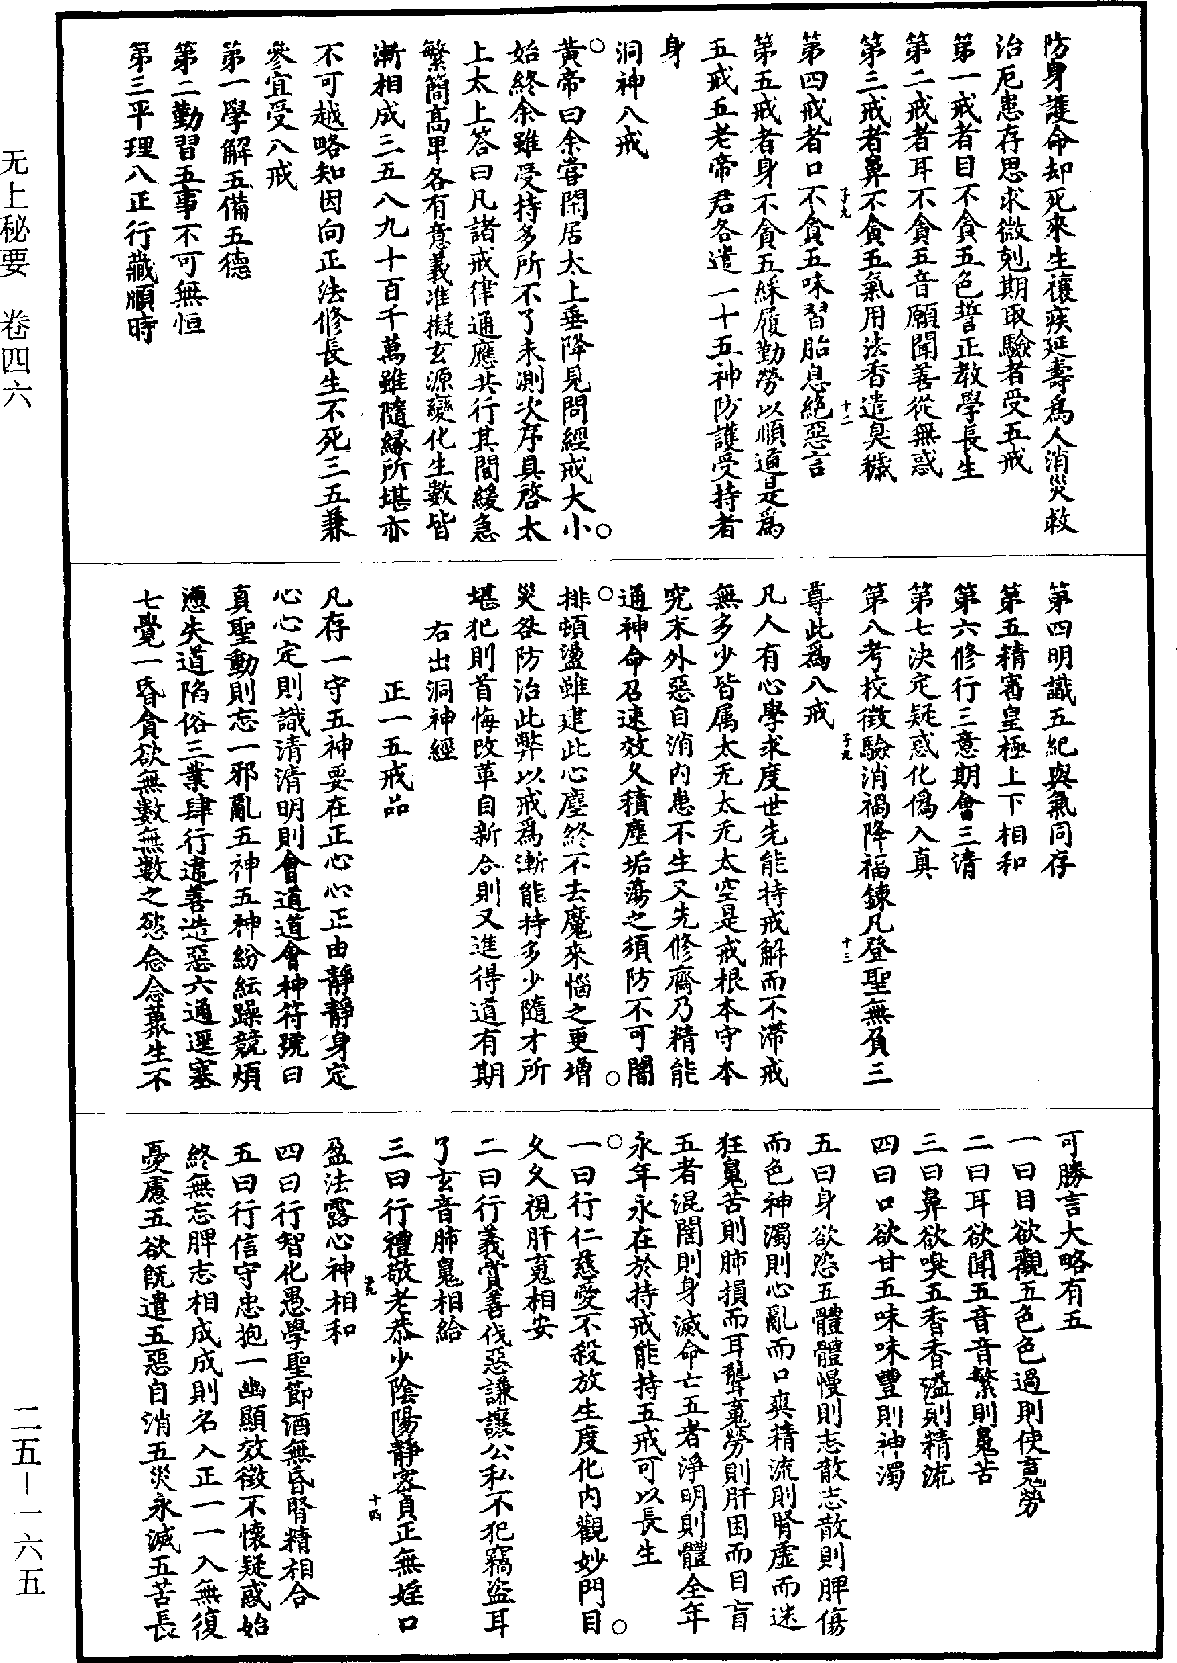 防身護命却死來生禳疾延壽爲人消災救
治厄患存思求微剋期取驗者受五戒
第一戒者目不貪五色誓正教學長生
第二戒者耳不貪五音願聞善從無惑
第三戒者鼻不貪五氣用法香遣臭穢
第四戒者口不貪五味習胎息絕惡言
第五戒者身不貪五綵履勤勞以順道是爲
五戒五老帝君各遣一十五神防護受持者
身
洞神八戒
黃帝曰余嘗閑居太上垂降見問經戒大小
始終余雖受持多所不了未測次序具啓太
上太上答曰凡諸戒律通應共行其間緩急
繁簡高卑各有意義准擬玄源變化生數皆
漸相成三五八九十百千萬雖隨緣所堪亦
不可越略知因向正法修長生不死三五兼
參宜受八戒
第一學解五備五德
第二勤習五事不可無恒
第三平理八正行藏順時
第四明識五紀與氣同存
第五精審皇極上下相和
第六修行三意期會三清
第七決定疑惑化僞入真
第八考校徵驗消禍降福鍊凡登聖無負三
尊此爲八戒
凡人有心學求度世先能持戒解而不滯戒
無多少皆属太无太无太空是戒根本守本
究末外惡自消内患不生又先修齋乃精能
通神命召速效久積塵垢蕩之須防不可闇
排頓盪雖建此心塵終不去魔來惱之更增
災咎防治此弊以戒爲漸能持多少隨才所
堪犯則首悔改革自新合則又進得道有期
右出洞神經
正一五戒品
凡存一守五神要在正心心正由靜靜身定
心心定則識清清明則會道道會神符號曰
真聖動則忘一邪亂五神五神紛紜躁競煩
懣失道陷俗三業肆行違善造惡六通遝塞
七覺一昏貪欲無數無數之愆念念叢生不
可勝言大略有五
一曰目欲觀五色色過則使䰟勞
二曰耳欲聞五音音繁則䰟苦
三曰鼻欲嗅五香香溢則精流
四曰口欲甘五味味豐則神濁
五曰身欲恣五體體慢則志散志散則脾傷
而色神濁則心亂而口爽精流則腎虛而迷
狂䰟苦則肺損而耳聾䰟勞則肝困而目盲
五者混闇則身滅命亡五者淨明則體全年
永年永在於持戒能持五戒可以長生
一曰行仁慈愛不殺放生度化内觀妙門目
久久視肝䰟相安
二曰行義賞善伐惡謙讓公私不犯竊盜耳
了玄音肺䰟相給
三曰行禮敬老恭少陰陽靜密貞正無婬口
盈法露心神相和
四曰行智化愚學聖節酒無昏腎精相合
五曰行信守忠抱一幽顯效徵不懷疑惑始
終無忘脾志相成成則名入正一一入無復
憂慮五欲旣遣五惡自消五災永滅五苦長
无上秘要 卷四六
二五－一六五